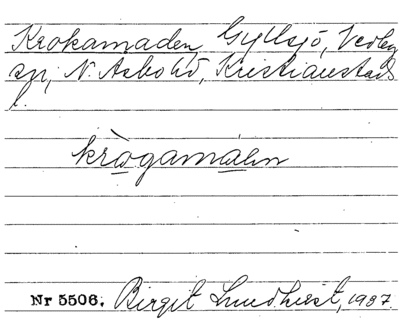 Krokamaden, Gyllsjö, Vedby
sn, N. Åsbo hd, Kristianstads
l.
krògamáln
Nr 5506. Birgit Lundkvist, 1987.